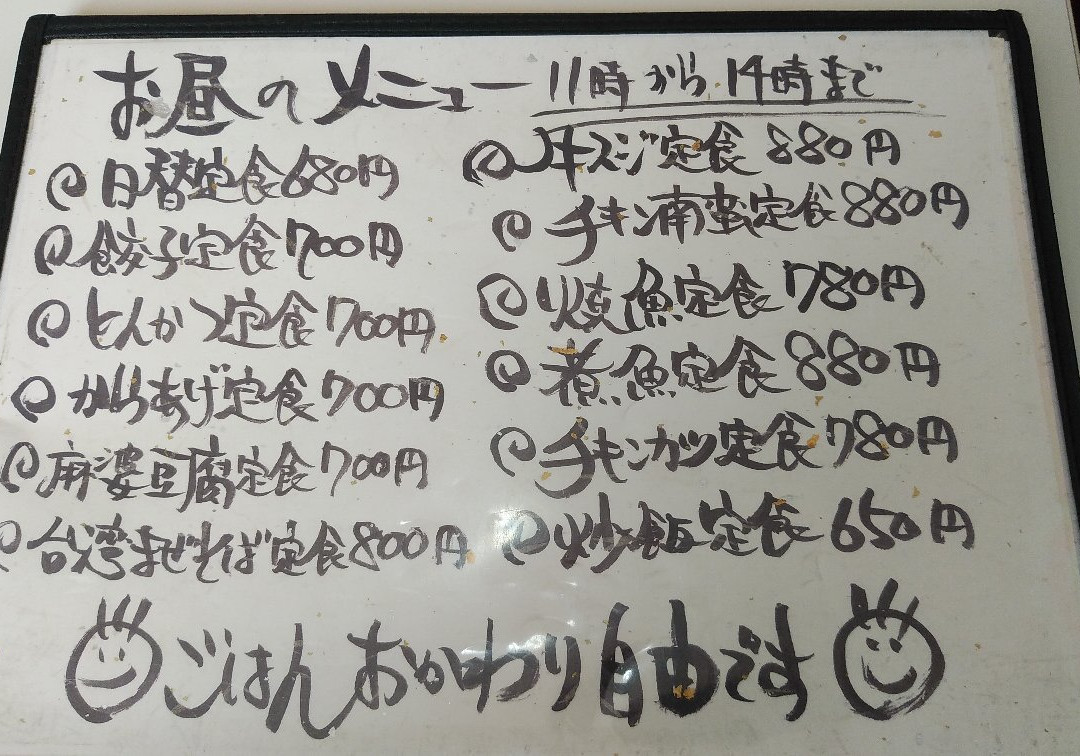 お昼のメニュー 11時から14時まで
日替定食680円
餃子定食700円
とんかつ定食700円
からあげ定食700円
麻婆豆腐定食700円
台湾まぜそば定食800円
牛スジ定食 880円
チキン南蛮定食880円
焼魚定食 780円
煮魚定食880円
チキンカツ定食780円
炒飯定食 650円
ごはんおかわり自由です